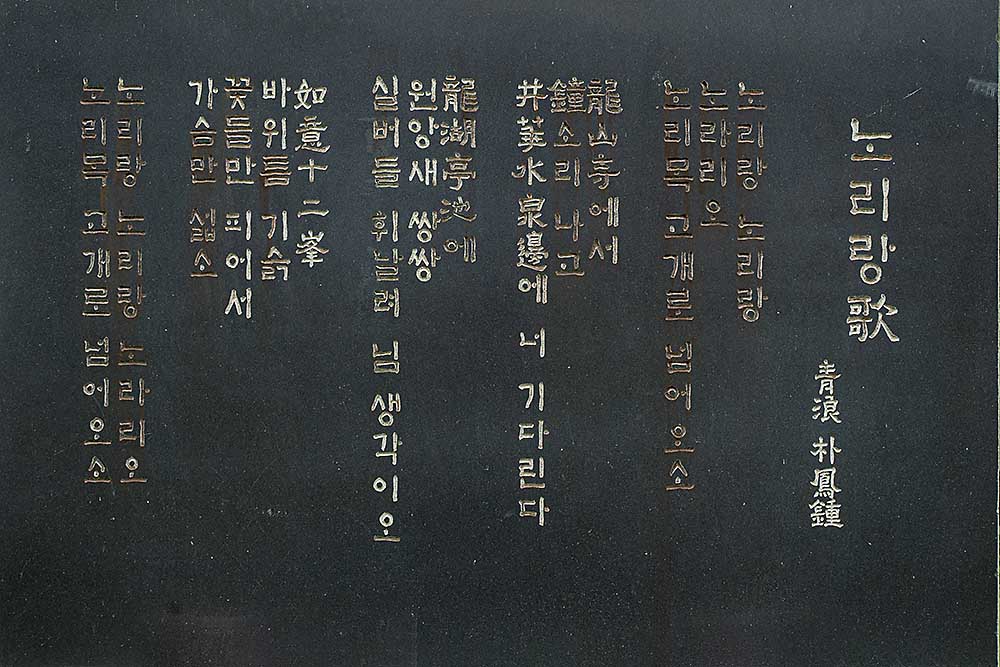 노리랑歌
青浪 朴鳳鍾
노리랑 노리랑
노라리오
노리목 고개로 넘어오소
龍山亭에서
鐘소리 나고
井華水泉邊에 너 기다린다
龍湖亭池에
원앙새 쌍쌍
실버들 휘날려 님 생각이오
如意十二峯
바위틈 기슭
꽃들만 피어서
가슴만 섧소
노리랑 노리랑 노라리오
노리목 고개로 넘어오소